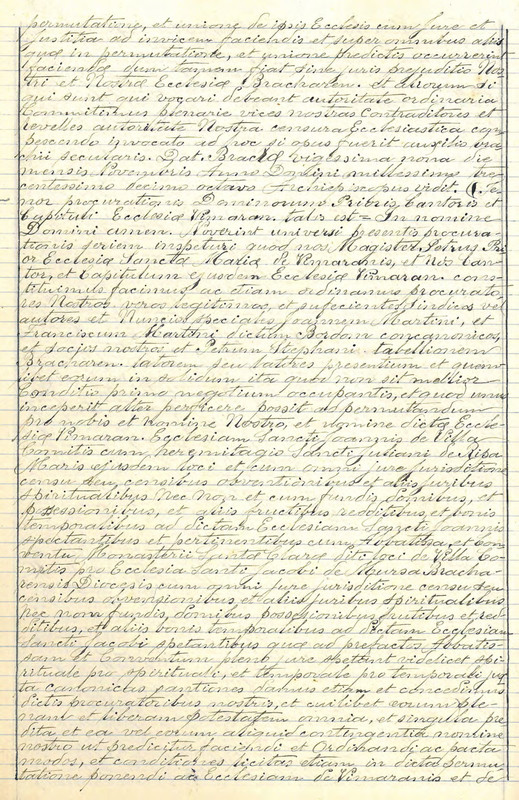 permutatine, et unione de ipsis Ecclesis cum jure et
justitia ad invicem faciendis et super omnibus aliis
quæ in permutatione, et unione predictis occurrerint
facienda dum tamen fiat sine juris prejuditio Nos
tri et Nostræ Ecclesiæ Bracharen. et aliorum si
qui sunt qui vocari debeant autoritate ordinaria
Committimus plenarie vices nostras Contraditores et
revelles autoritate Nostra censura Ecclesiastica com
pescendo invocato ad hoc si opus fuerit auxilio bra
chii secularis. Dat. Brachæ vigessima nona die
mensis Novembris Anno Domini millessimo tre
centessimo decimo octavo Archiepiscopus vidit. Te
nor procurationis Dominorum Prioris, Cantoris et
Capituli Ecclesiæ Vimaran. talis est = In nomine
Domini amen. Noverint universi presentis procura
tionis seriem inspeturi quod nos Magister Petrus Pri
or Ecclesiæ Sanctæ Mariæ de Vimaranis, et Nos Can
tor, et Capitulum ejusdem Ecclesiæ Vimaran. cons
tituimus facimus, ac etiam ordinamus procurato
res Nostros veros legitimos, et suficientes sindicos vel
autores et Nuncios speciales Joannem Martini, et
Franciscum Martini dictum Bordom concanonicos,
et socios nostros, et Petrum Stephani tabellionem
Bracharen. latorem seu latores presentium et quem
libet eorum in solidum ita quod non sit mellior
conditio primo negotium occupantis, et quod unus
inceperit alter perficere possit ad permutandum
pro nobis et Nomine Nostro, et Nomine dictæ Eccle
siæ Vimaran. Ecclesiam Sancti Joannis de Villa
Comitis cum heremitagio Sancti Juliani de Ripa
Maris ejusdem loci et cum omni jure jurisditione
censu seu censibus obventionibus et aliis juribus
spiritualibus Nec Non et cum fundis domibus, et
possessionibus, et aliis fructibus redditibus, et bonis
temporalibus ad dictam Ecclesiam Sancti Joannis
spectantibus et pertinentibus cum Abbatissa, et Con
ventu Monasterii Sanctæ Claræ dicti loci de Villa Co
mitis pro Ecclesia Santi Jacobi de Mursa Bracha
rensis Diocesis cum omni jure jurisditione censu seu
censibus obvensionibus et aliis juribus spiritualibus
nec non fundis, domibus possessionibus fructibus et red
ditibus, et aliis bonis temporalibus ad dictam Ecclesiam
Sancti Jacobi spetantibus quæ ad prefactos Abbatis
sam et Conventum pleno jure spetant videlicet spi
rituale pro spirituali, et temporale pro temporali jux
ta canonicas santiones damus etiam et concedimus
dictis procuratoribus nostris, et cuilibet eorum ple
nam et liberam potestatem omnia, et singula pre
dita et ea vel eorum aliquid contingentia nomine
nostro ut predicitur faciendi et Ordinandi ac pacta
modos, et conditiones licitas etiam in dicta Permu
tatione ponendi ac Ecclesiam de Vimaranis et de